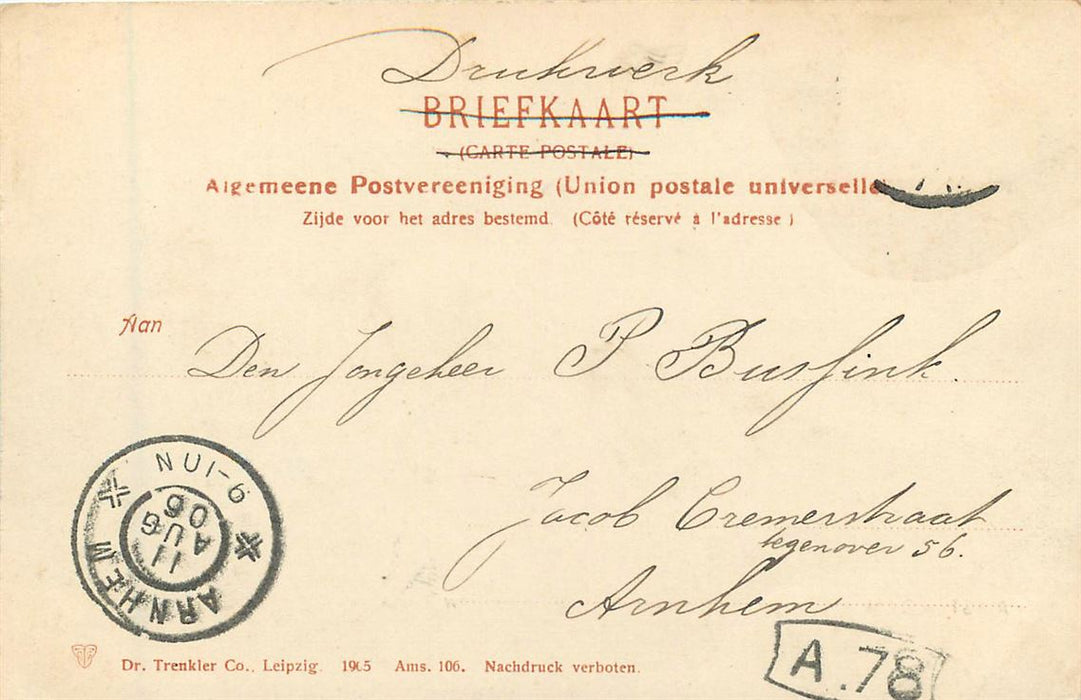 Drukwerk
BRIEFKAART
(CARTE POSTALE)
Algemeene Postvereeniging (Union postale universelle
Zijde voor het adres bestemd. (Côté réservé à l'adresse)
Aan
Den Jongeheer P Bussink.
Jacob Cremerstraat
tegenover 56.
Arnhem
ARNHEM
11
AUG
06
9-10N
A.78
Dr. Trenkler Co., Leipzig. 1905 Ams. 106. Nachdruck verboten.